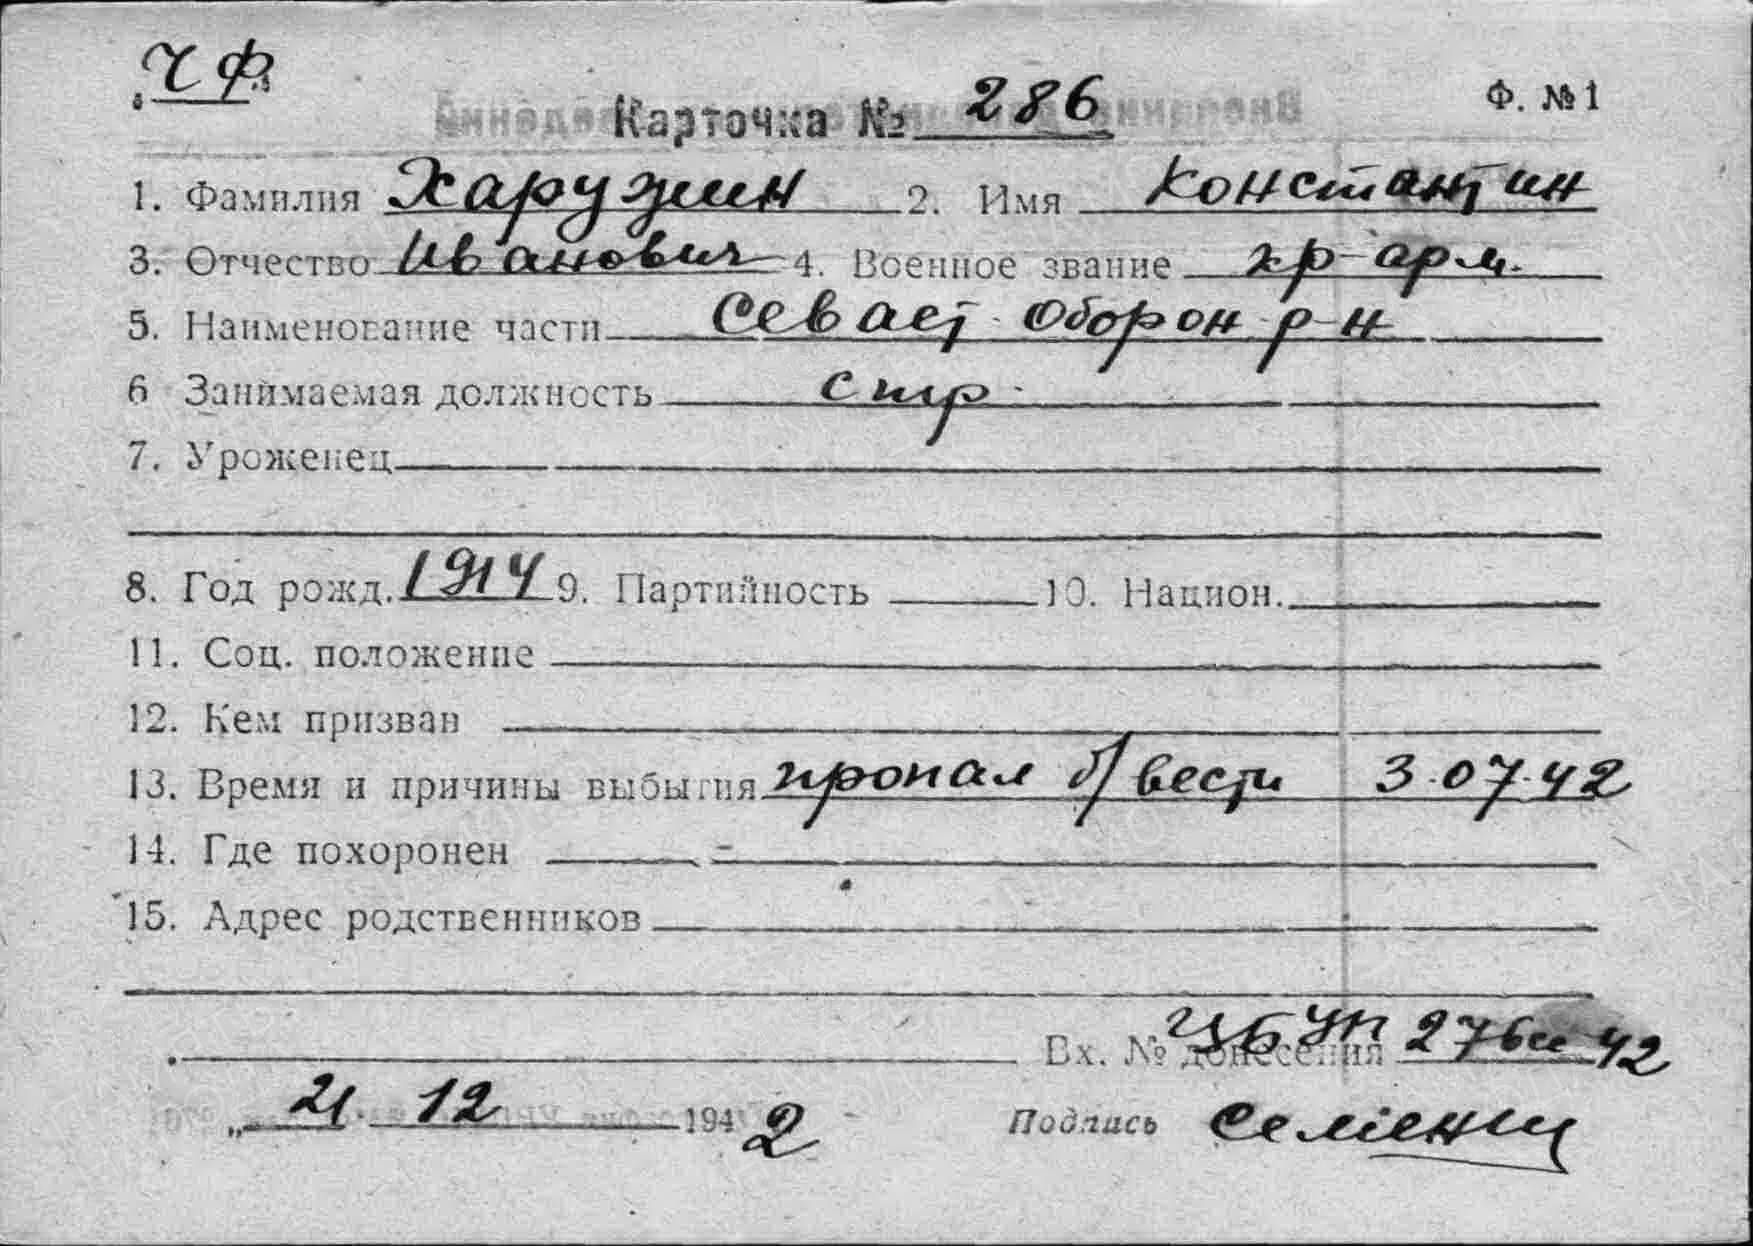 ЧФ
Карточка № 286 Ф. №1
1. Фамилия Харузин 2. Имя Константин
3. Отчество Иванович 4. Военное звание кр-арм.
5. Наименование части Севаст. оборон. р-н
6 Занимаемая должность стр.
7. Уроженец
8. Год рожд. 1914 9. Партийность 10. Национ.
11. Соц. положение
12. Кем призван
13. Время и причины выбытия пропал б/вести 3.07.42
14. Где похоронен
15. Адрес родственников
Вх. № донесения 276сс 42
„ 21. 12 1942 Подпись